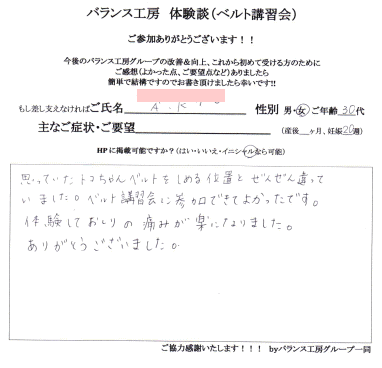 バランス工房　体験談（ベルト講習会）
ご参加ありがとうございます！！
今後のバランス工房グループの改善＆向上、これから初めて受ける方のために
ご感想（よかった点、ご要望点など）ありましたら
簡単で結構ですのでお書き頂けましたら幸いです!!
もし差し支えなければご氏名　性別 男・女 ご年齢 30代
主なご症状・ご要望　（産後　ヶ月、妊娠20週）
HPに掲載可能ですか？（はい・いいえ・イニシャルなら可能）
思っていたトコちゃんベルトをしめる位置とぜんぜん違って
いました。ベルト講習会に参加できてよかったです。
体験しておしりの痛みが楽になりました。
ありがとうございました。
ご協力感謝いたします！！！　byバランス工房グループ一同